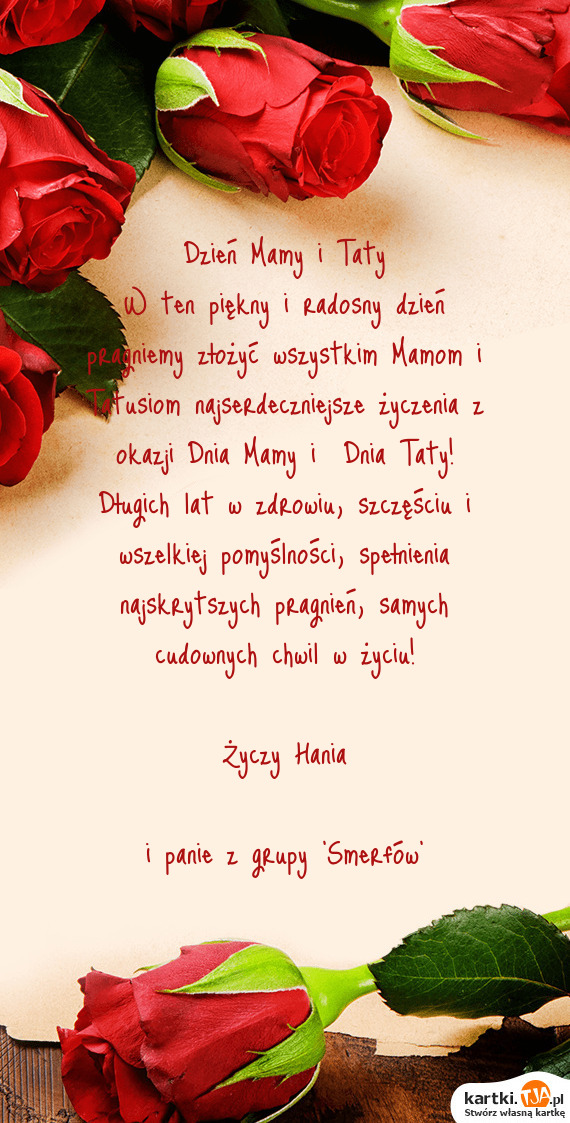 Dzień Mamy i Taty
W ten piękny i radosny dzień
pragniemy złożyć wszystkim Mamom i
Tatusiom najserdeczniejsze życzenia z
okazji Dnia Mamy i Dnia Taty!
Długich lat w zdrowiu, szczęściu i
wszelkiej pomyślności, spełnienia
najskrytszych pragnień, samych
cudownych chwil w życiu!
Życzy Hania
i panie z grupy "Smerfów"
kartki.TJA.pl
Stwórz własną kartkę